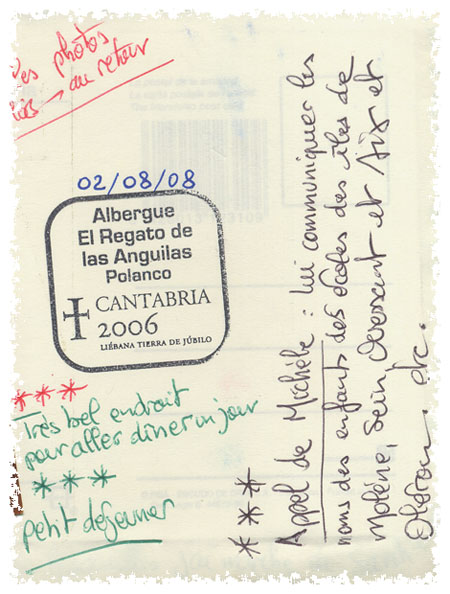 des photos
→ au retour
02/08/08
Albergue
El Regato de
las Anguilas
Polanco
CANTABRIA
2006
LIÉBANA TIERRA DE JÚBILO
***
Très bel endroit
pour aller dîner un jour
***
petit déjeuner
*** Appel de Michèle : lui communiquer les
noms des enfants des écoles des îles de
Molène, Sein, Ouessant et Aix et
Oléron, etc.